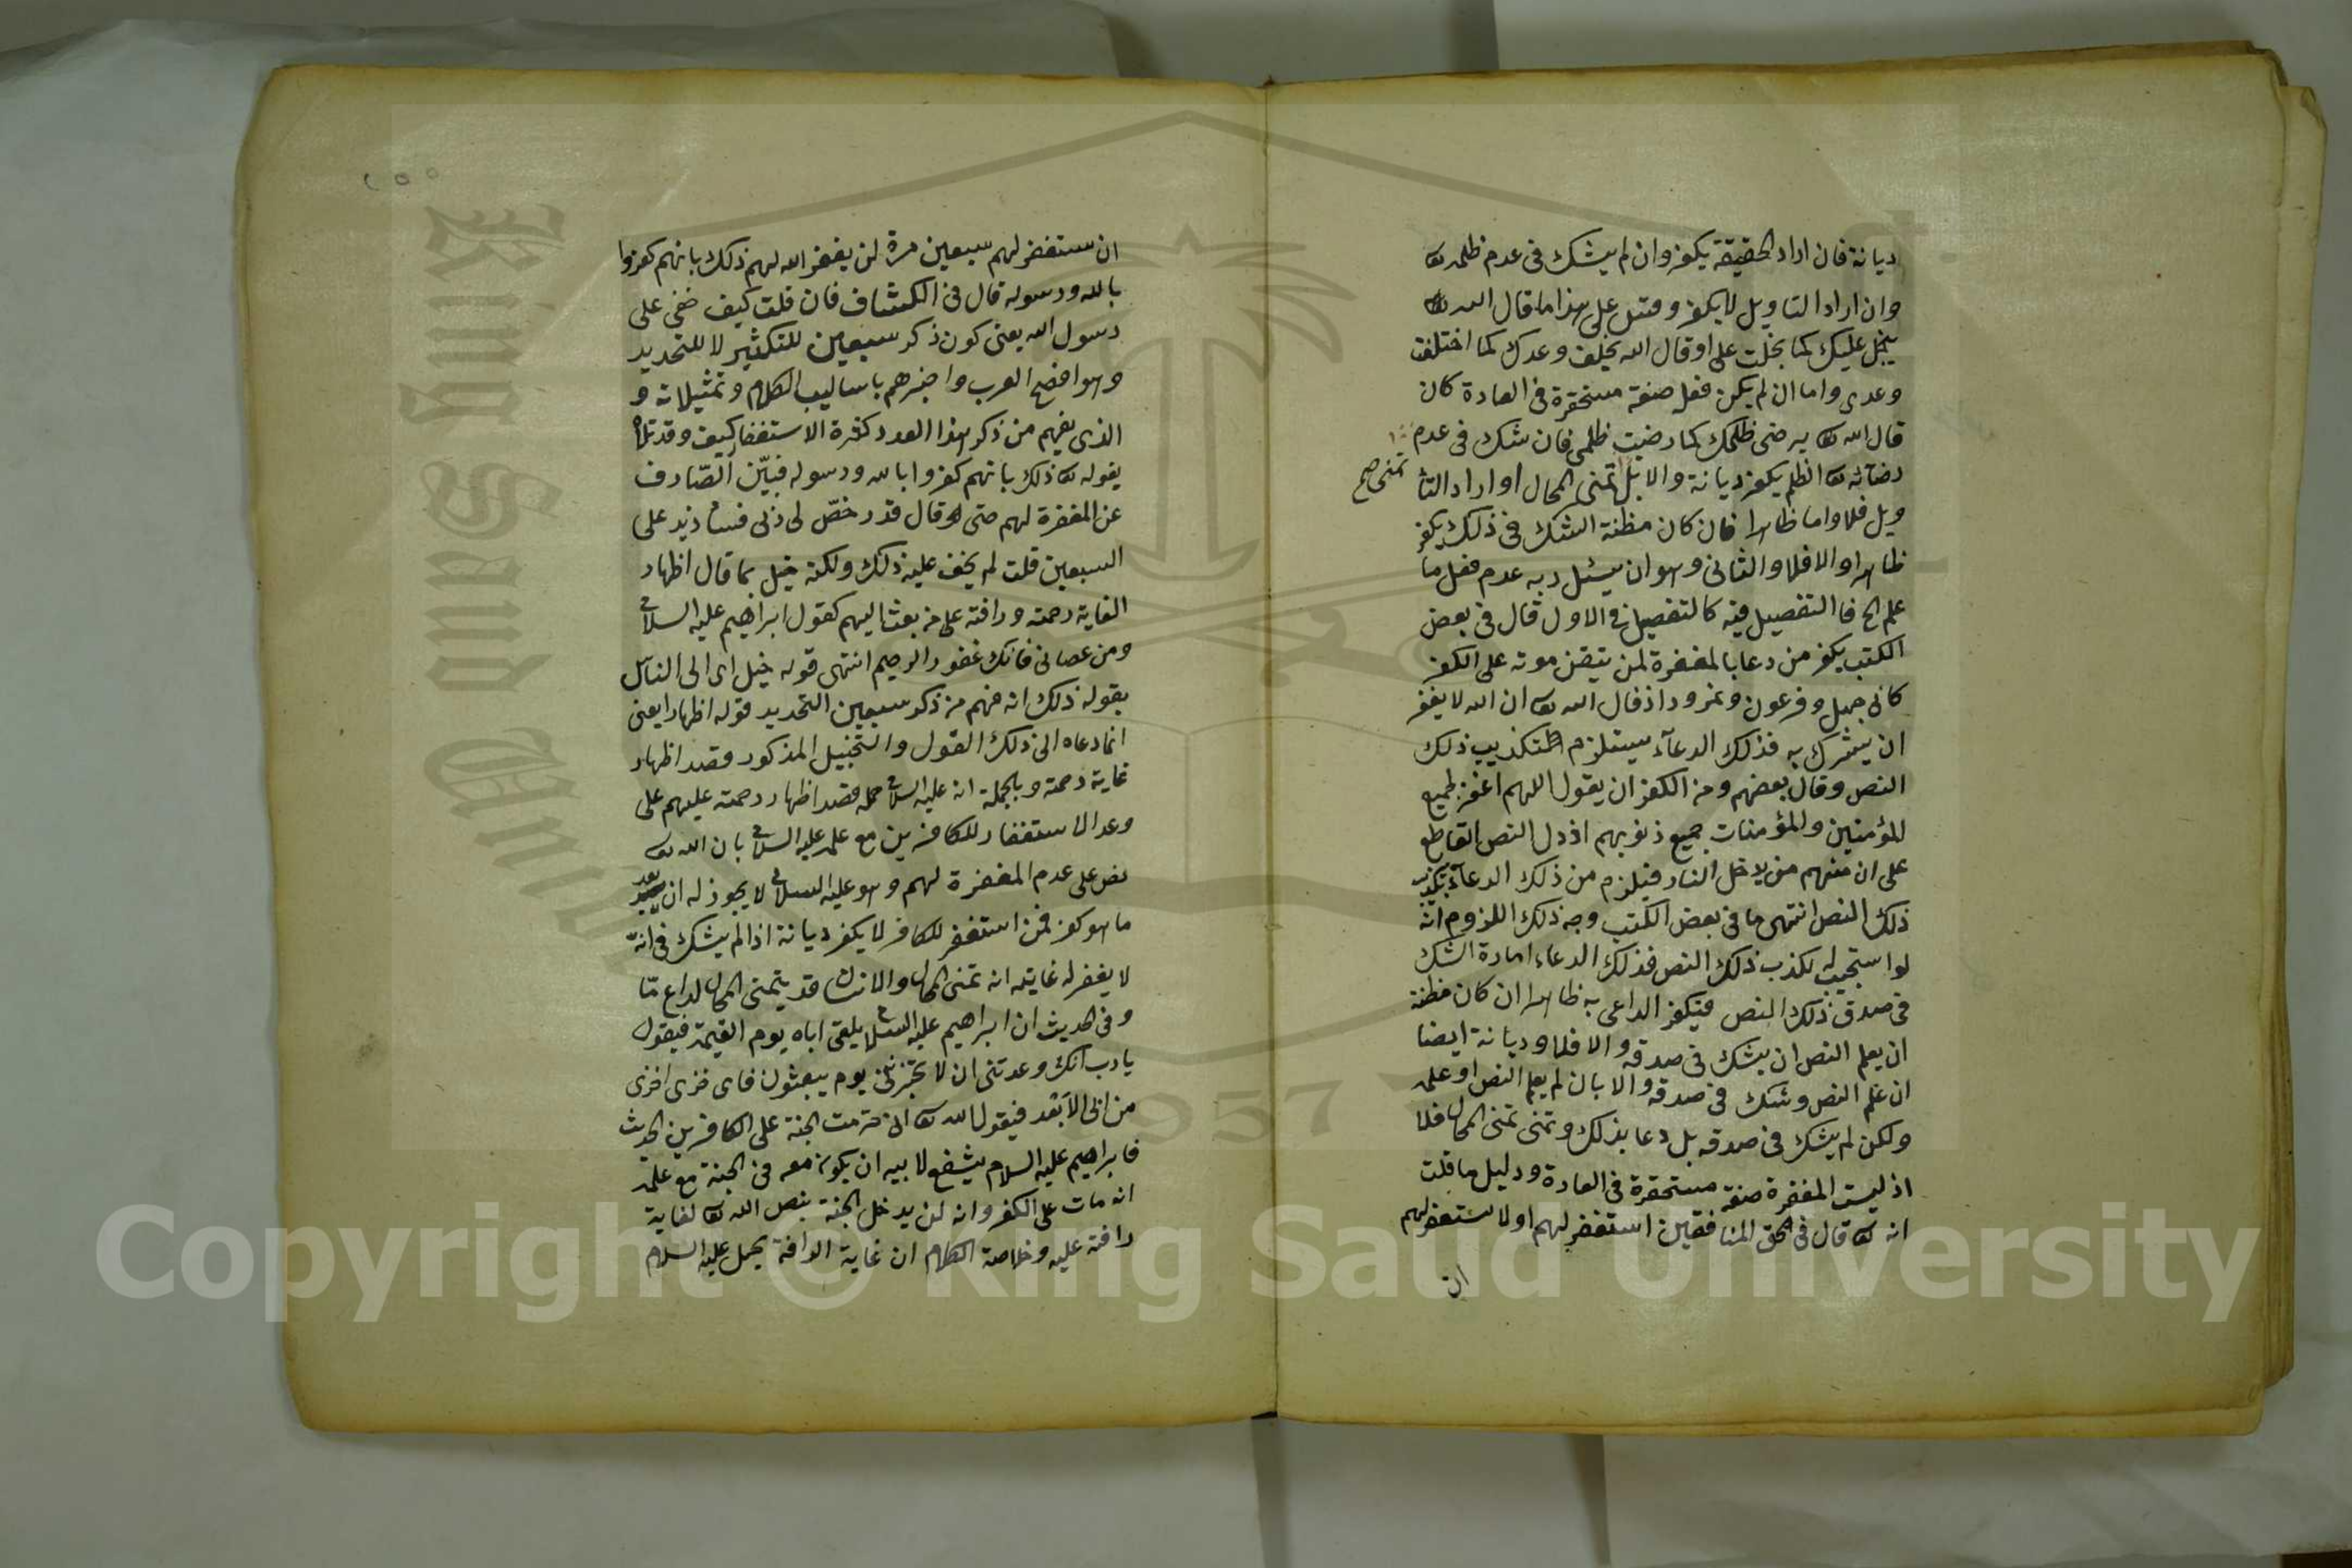 ديانة فان اراد الحقيقة يكفر وان لم يشك فى عدم ظلمه تع
وان اراد التاويل لا يكفر وقس على هذا ما قال الله تع
يبخل عليك كما بخلت على او قال الله يخلف وعدك كما اختلفت
وعدى واما ان لم يكن فعل صفة مستحقرة فى العادة كان
قال الله تع يرضى ظلمك كما رضيت ظلمى فان شك فى عدم
رضائه تع الظلم يكفر ديانة والا بل تمنى المحال او اراد التا
تمنى صح
ويل فلا واما ظاهرا فان كان مظنة الشك فى ذلك يكفر
ظاهرا والا فلا والثانى وهو ان يسئل ربه عدم فعل ما
علم الخ فا التفصيل فيه كالتفصيل فى الاول قال فى بعض
الكتب يكفر من دعا بالمغفرة لمن تيقن موته على الكفر
كابى جهل وفرعون ونمرود اذ قال الله تع ان الله لا يغفر
ان يشرك به فذلك الدعآء يستلزم لتكذيب ذلك
النص وقال بعضهم ومن الكفر ان يقول اللهم اغفر لجميع
للمؤمنين والمؤمنات جميع ذنوبهم اذ دل النص القاطع
على ان منهم من يدخل النار فيلزم من ذلك الدعآء تكذيب
ذلك النص انتهى ما فى بعض الكتب وجه ذلك اللزوم انه
لو استجيب له لكذب ذلك النص فذلك الدعاء امارة الشك
فى صدق ذلك النص فيكفر الداعى به ظاهرا ان كان مظنة
ان يعلم النص ان يشك فى صدقه والا فلا وديانة ايضا
ان علم النص وشك فى صدقه والا بان لم يعلم النص او علمه
ولكن لم يشك فى صدقه بل دعا بذلك وتمنى تمنى المحال فلا
اذ ليست المغفرة صفة مستحقرة فى العادة ودليل ما قلت
انه تع قال فى الحق المنافقين استغفر لهم او لا ستغفر لهم
ان
ان ستغفر لهم سبعين مرة لن يغفر الله لهم ذلك بانهم كفروا
بالله ورسوله قال فى الكشاف فان قلت كيف خفى على
رسول الله يعنى كون ذكر سبعين للتكثير لا للتحديد
وهو افضح العرب واخبرهم باساليب الكلام وتمثيلاته و
الذى يفهم من ذكر هذا العدد كثرة الاستغفار كيف وقد تلاه
بقوله تع ذلك بانهم كفروا بالله ورسوله فبيّن الصّارف
عن المغفرة لهم حتى قال قد رخصّ لى ربى فسازيد على
السبعين قلت لم يخف عليه ذلك ولكنه خيل بما قال اظهار
الغاية رحمته ورافته على من بعث اليهم كقول ابراهيم عليه السلام
ومن عصانى فانك غفور الرحيم انتهى قوله خيل اى الى الناس
بقوله ذلك انه فهم من ذكر سبعين التحديد قوله اظهارا يعنى
انما دعاه الى ذلك القول والتخييل المذكور قصد اظهار
غاية رحمته وبالجملة انه عليه السلام حمله قصد اظهار رحمته عليهم على
وعد الاستغفار للكافرين مع علمه عليه السلام بان الله تع
نص على عدم المغفرة لهم وهو عليه السلام لا يجوز له ان يعد
ما هو كفر فمن استغفر للكافر لا يكفر ديانة اذا لم يشك فى انه
لا يغفر له غايته انه تمنى المحال والانسان قد يتمنى المحال لداع مّا
وفى الحديث ان ابراهيم عليه السلام يلقى اباه يوم القيمة فيقول
يا رب انك وعدتنى ان لا تخزنى يوم يبعثون فاى خزى اخزى
من ابى الابعد فيقول الله تع انى حرمت الجنة على الكافرين الحديث
فابراهيم عليه السلام يشفع لابيه ان يكون معه فى الجنة مع علمه
انه مات على الكفر وانه لن يدخل الجنة بنص الله تع لغاية
رافته عليه وخلاصة الكلام ان غاية الرافة يحمل عليه السلام
Copyright © King Saud University
King Saud University
1957